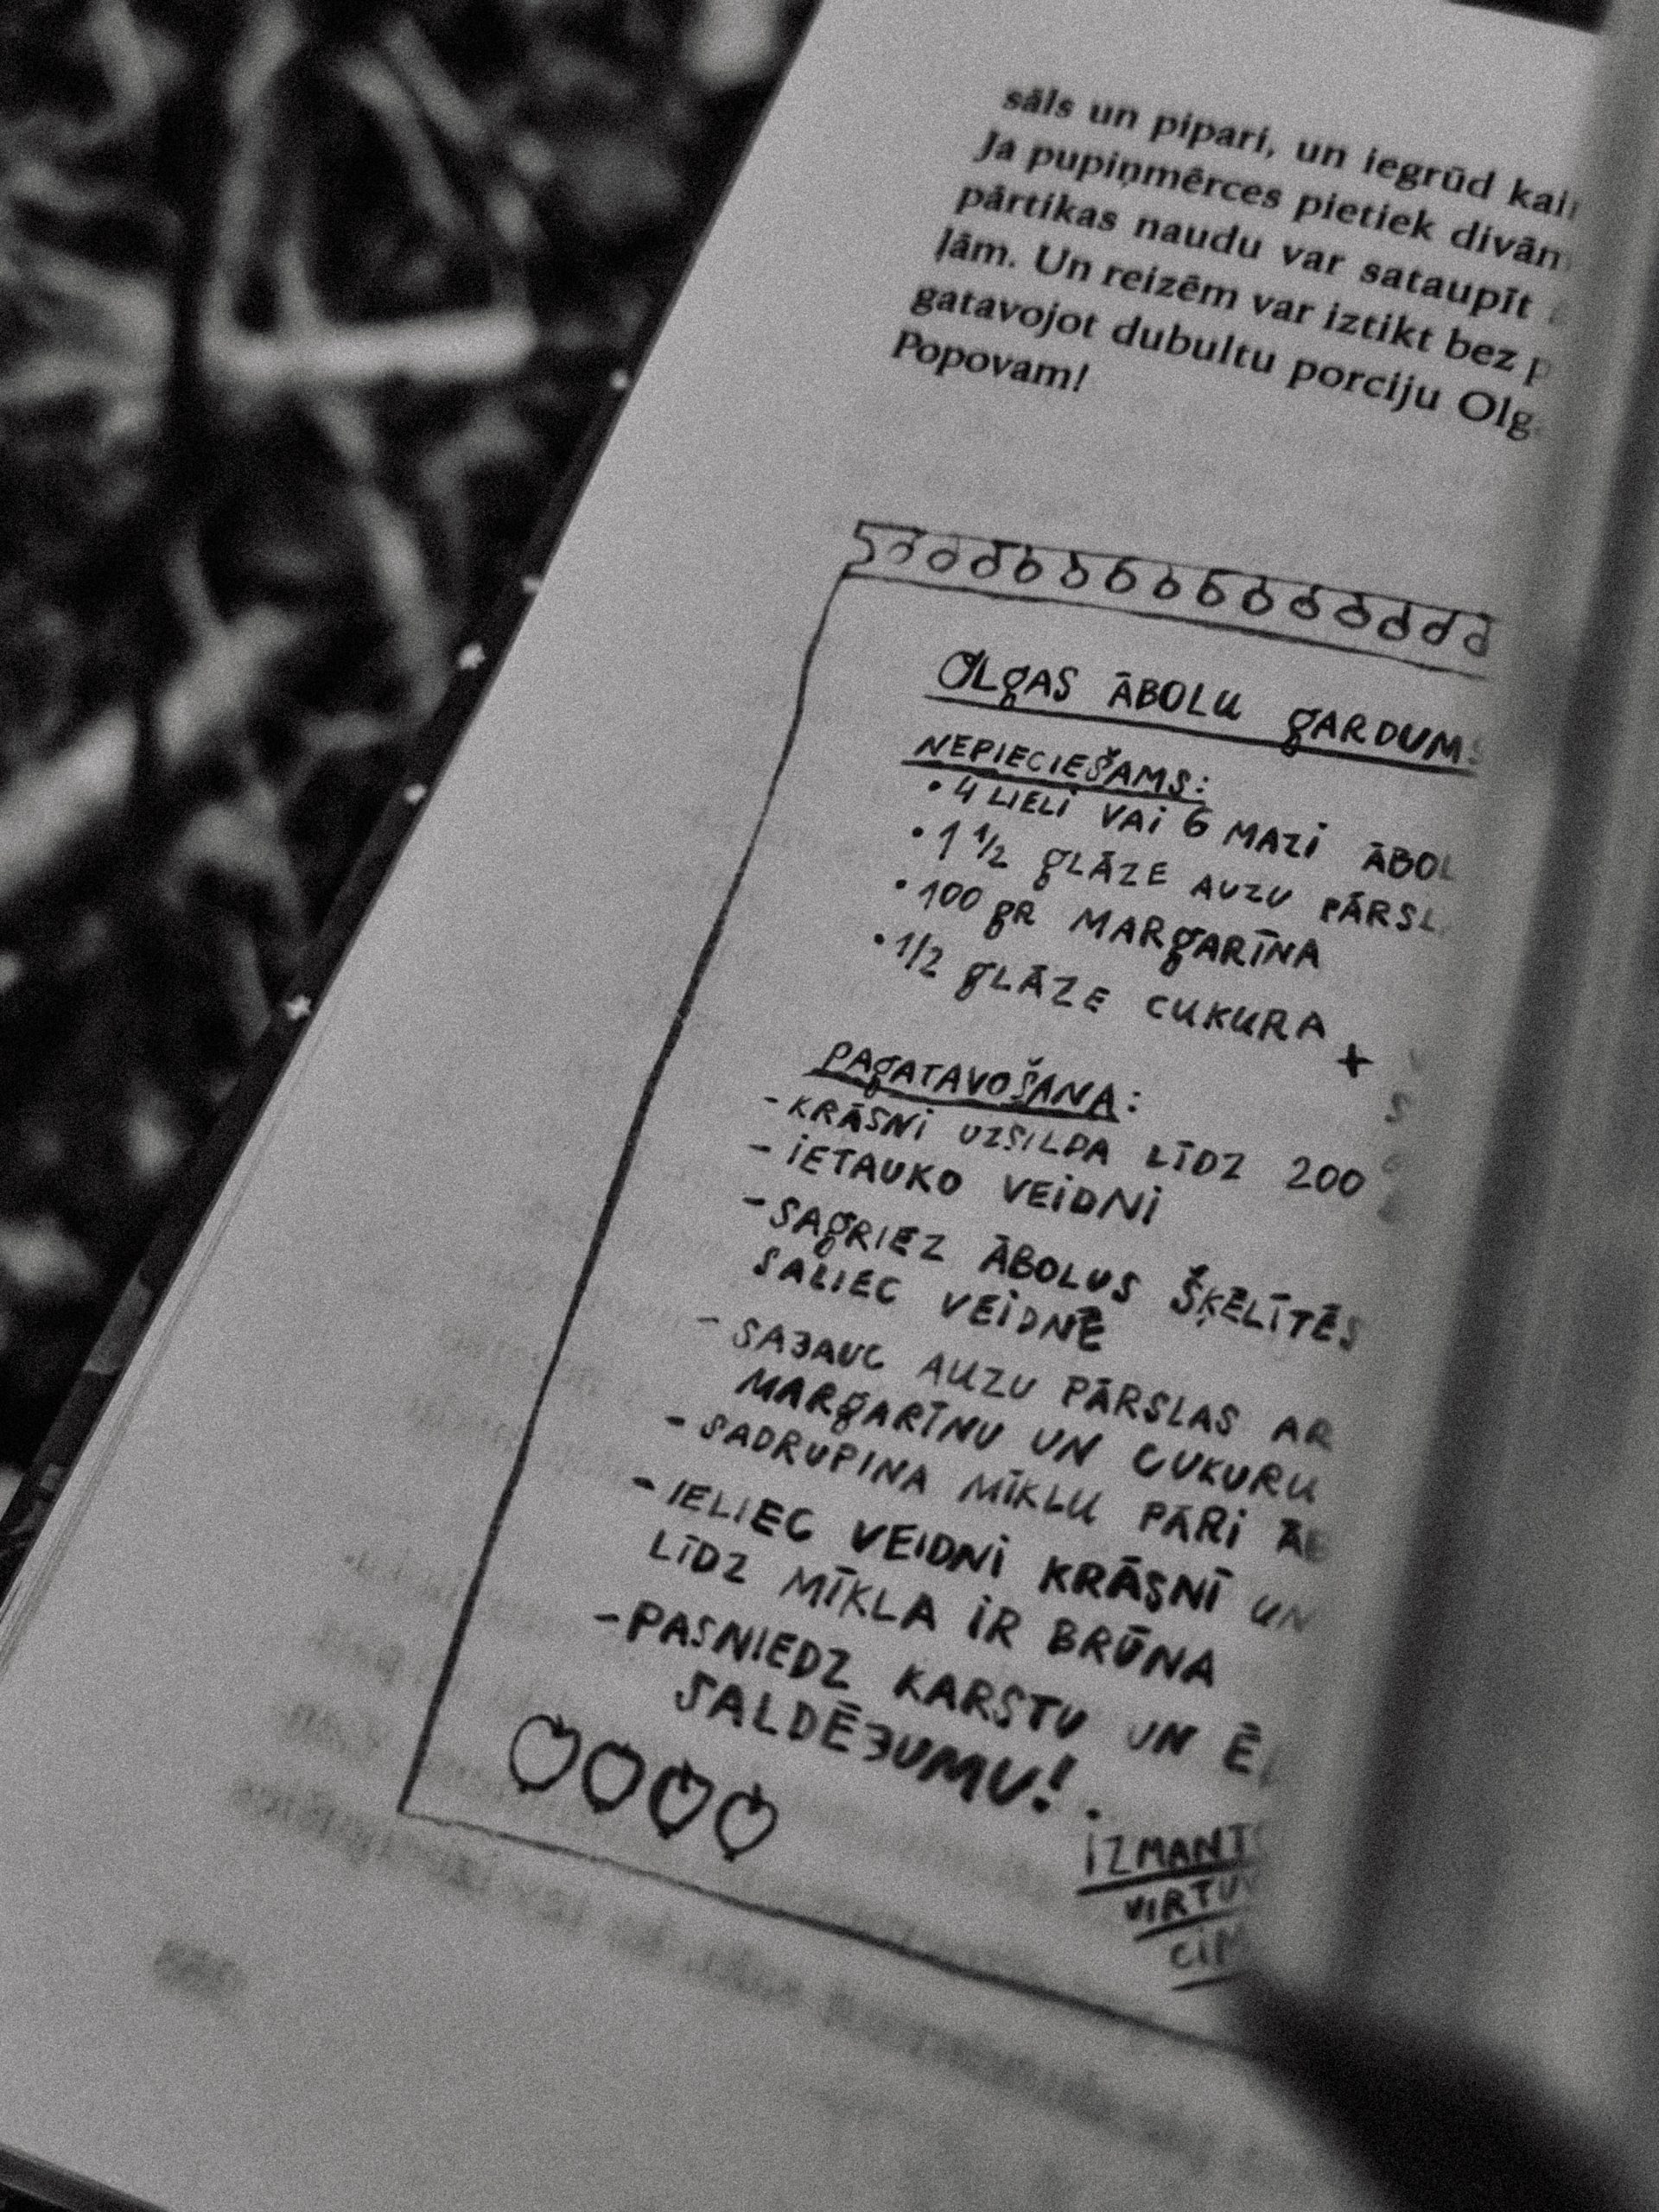 sāls un pipari, un iegrūd
Ja pupiņmērces pietiek
pārtikas naudu var sataupīt
ļām. Un reizēm var iztikt bez
gatavojot dubultu porciju
Popovam!
OLGAS ĀBOLU GARDUMS
NEPIECIEŠAMS:
• 4 LIELI VAI 6 MAZI
• 1 1/2 GLĀZE AUZU
• 100 GR MARGARĪNA
• 1/2 GLĀZE CUKURA +
PAGATAVOŠANA:
- KRĀSNI UZSILDA LĪDZ 200
- IETAUKO VEIDNI
- SAGRIEZ ĀBOLUS ŠĶĒLĪTĒS
SALIEC VEIDNĒ
- SAJAUC AUZU PĀRSLAS AR
MARGARĪNU UN CUKURU
- SADRUPINA MĪKLU PĀRI
- IELIEC VEIDNI KRĀSNĪ UN
LĪDZ MĪKLA IR BRŪNA
- PASNIEDZ KARSTU UN
SALDĒJUMU!